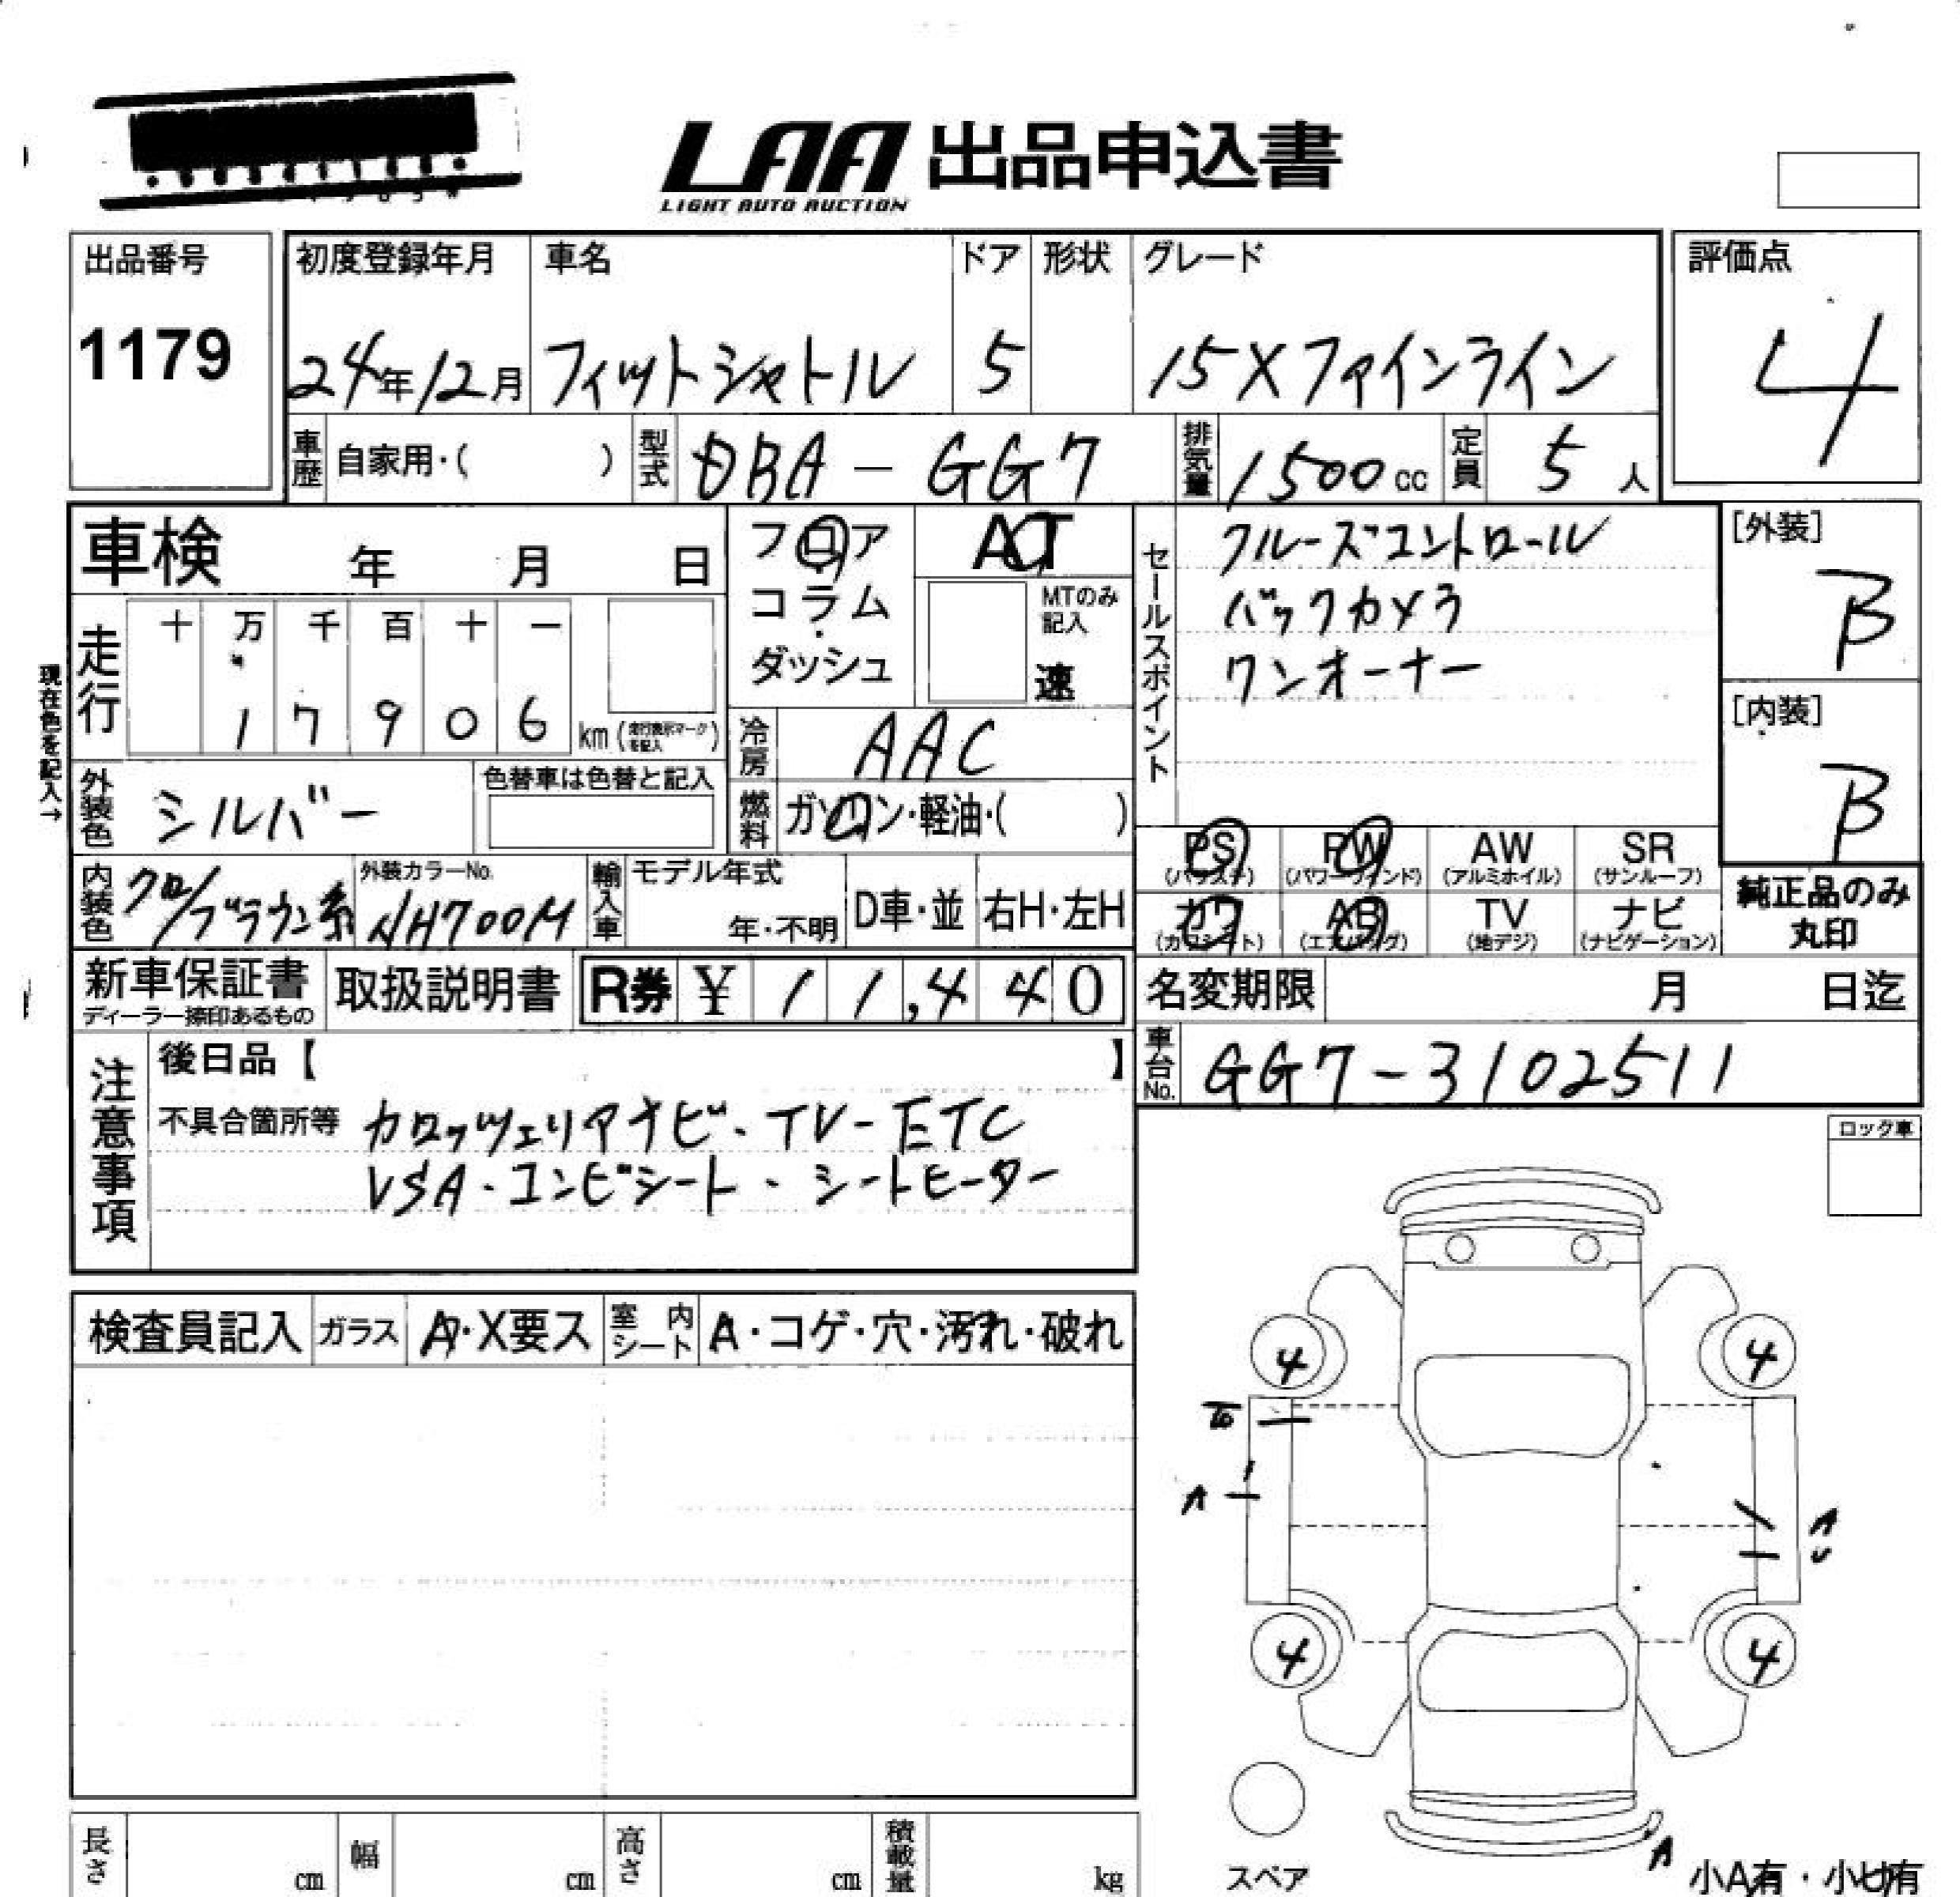 LAA 出品申込書
LIGHT AUTO AUCTION
出品番号
1179
初度登録年月 車名 ドア 形状 グレード
24年12月 フィットシャトル 5 15Xファインライン
評価点
4
車歴 自家用・( ) 型式 DBA-GG7 排気量 1500cc 定員 5人
車検 年 月 日
フロア
コラム
・
ダッシュ
AT
MTのみ
記入
速
セールスポイント
クルーズコントロール
バックカメラ
ワンオーナー
[外装]
B
[内装]
B
現在色を記入→
走行 十 万 千 百 十 一
17906 km(走行表示マークを記入)
冷房 AAC
外装色 シルバー
色替車は色替と記入
燃料 ガソリン・軽油・( )
PS PW AW SR
(パワステ) (パワーウインド) (アルミホイル) (サンルーフ)
カワ AB TV ナビ
(カワシート) (エアバッグ) (地デジ) (ナビゲーション)
純正品のみ
丸印
内装色 クロ/ブラウン系
外装カラーNo.
NH700M
輸入車 モデル年式
年・不明
D車・並 右H・左H
新車保証書
ディーラー捺印あるもの
取扱説明書 R券 ¥ 11,440
名変期限 月 日迄
車台No. GG7-3102511
注意事項
後日品【 】
不具合箇所等 カロッツェリアナビ・TV-ETC
VSA・コンビシート・シートヒーター
ロック車
検査員記入 ガラス A・X要ス 室内シート A・コゲ・穴・汚れ・破れ
4 4
A
A
U
4 4
A
スペア
小A有・小U有
長さ cm 幅 cm 高さ cm 積載量 kg